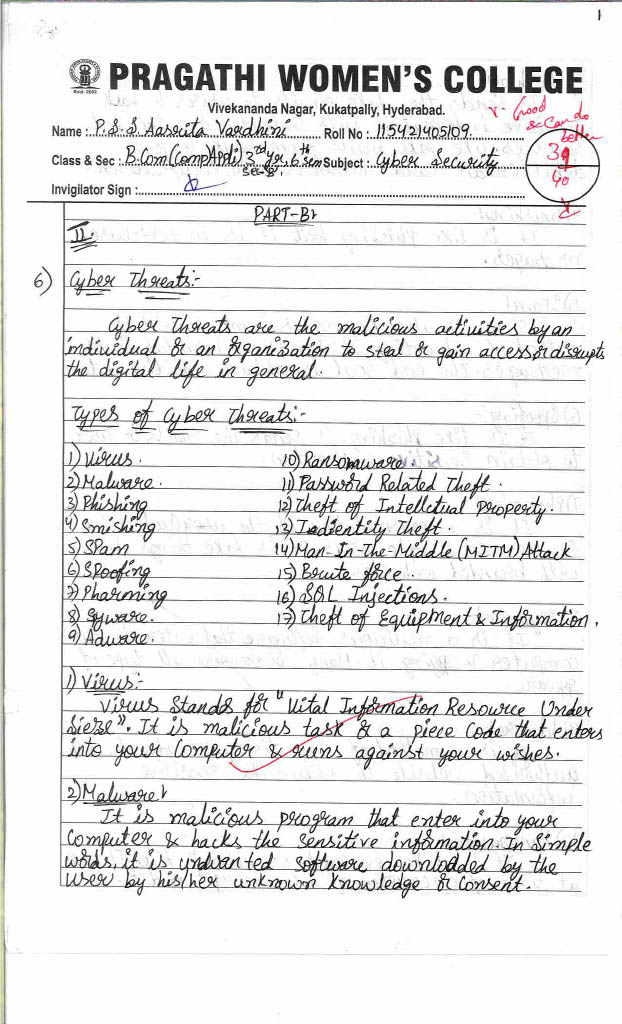 1
Estd. 2002
PRAGATHI WOMEN'S COLLEGE
Vivekananda Nagar, Kukatpally, Hyderabad.
Good
& Can do
better
Name : P.S.S. Aasrita Vardhini Roll No : 115421405109
Class & Sec : B.Com(CompAppli) 3rd yr, 6th sem Subject : Cyber Security
Sec-'B'.
39
40
Invigilator Sign :
PART-B
II.
6) Cyber Threats:-
Cyber Threats are the malicious activities by an
individual or an organization to steal or gain access or disrupts
the digital life in general.
Types of Cyber Threats:-
1) Virus.
2) Malware.
3) Phishing
4) Smishing
5) SPam
6) SPoofing
7) Pharming
8) Syware.
9) Adware.
10) Ransomware.
11) Password Related Theft.
12) Theft of Intellctual Property.
13) Iedientity Theft.
14) Man-In-The-Middle (MITM) Attack
15) Brute force.
16) SQL Injections.
17) Theft of Equipment & Information.
1) Virus:-
Virus Stands for "Vital Information Resource Under
Sieze". It is malicious task or a piece Code that enters
into your Computer & runs against your wishes.
2) Malware
It is malicious program that enter into your
Computer & hacks the Sensitive information. In Simple
words, it is undwanted Software downloaded by the
User by his/her unknown knowledge or Consent.